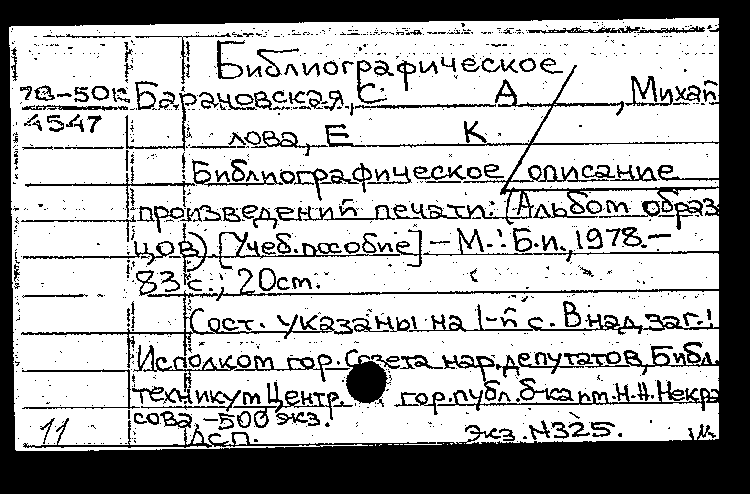 Библиографическое
78-50к Барановская, С А , Михай
4547
лова, Е К
Библиографическое описание
произведений печати: (Альбом образ
цов). [Учеб. пособие] – М.: Б.и., 1978.–
83 с.; 20 ст.
Сост. указаны на 1-й с. В над. заг.:
Исполком гор. Совета нар. депутатов, Библ.
техникум Центр. гор. публ. б-ка им. Н.А. Некра
сова, – 500 экз.
11 Дсп. Экз. N325.